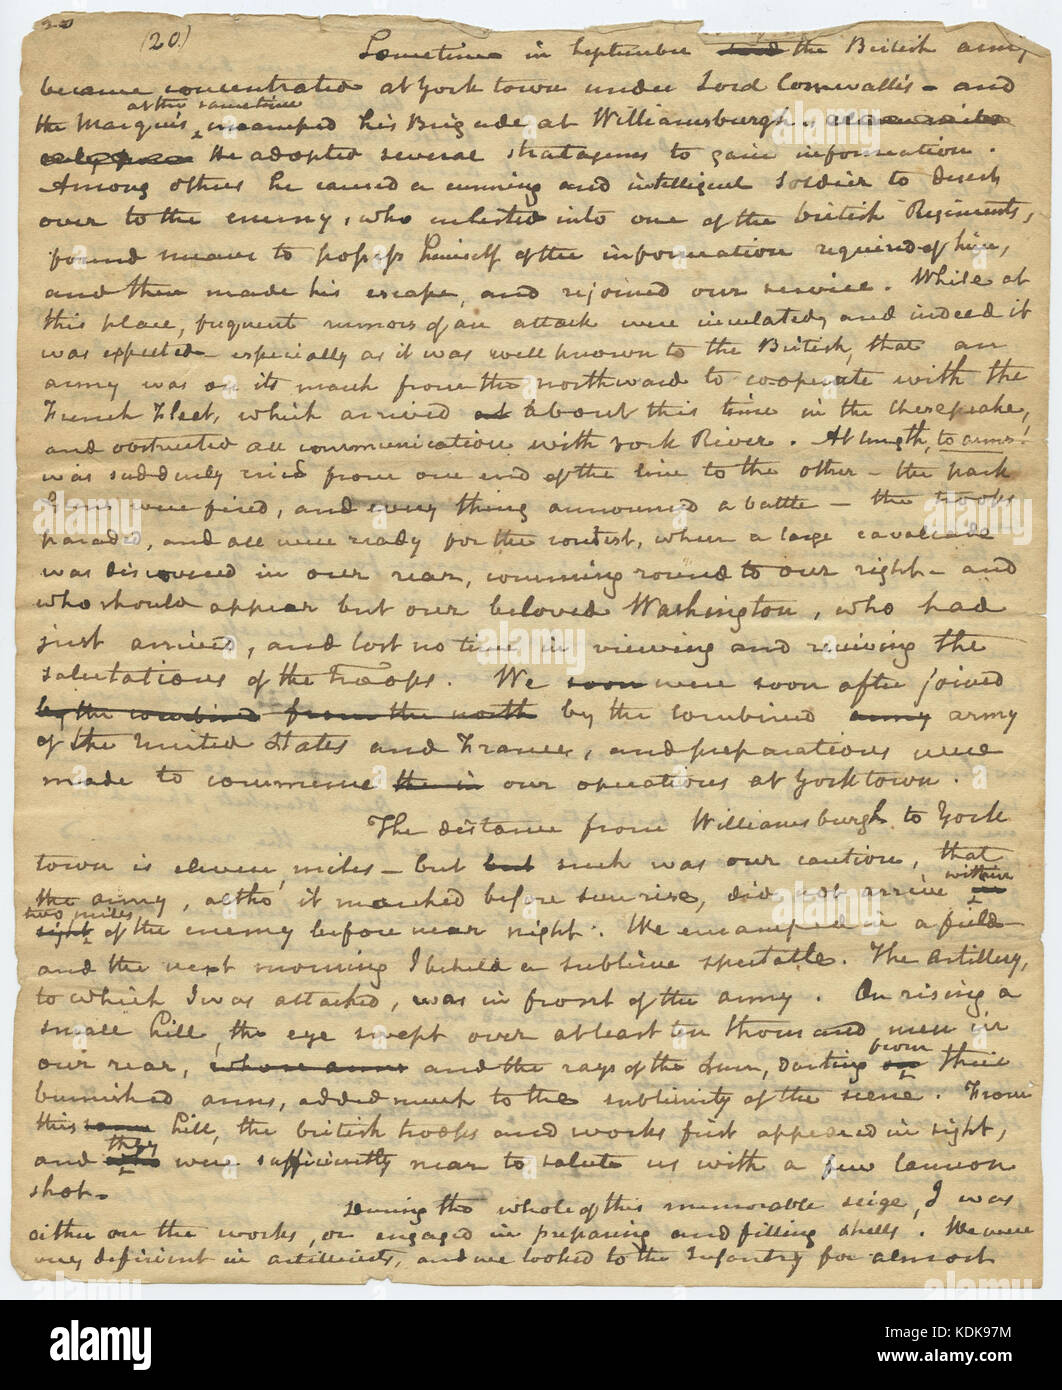 20
(20.)
Sometime in September said the British army
became concentrated at York town under Lord Cornwallis - and
at the sametime
the Marquis, incamped his Brigade at Williamsburgh,
He adopted several stratagems to gain information.
Among others he caused a cunning and intelligent Soldier to desert
over to the enemy, who inlisted into one of the british Regiments,
found means to possess himself of the information required of him,
and then made his escape, and rejoined our service. While at
this place, frequent rumors of an attack were circulated, and indeed it
was expected - especially as it was well known to the British, that an
army was on its march from the northward to cooperate with the
French Fleet, which arrived at about this time in the Chesepeake,
and obstructed all communication with York River. At length, to arms!
was suddenly cried from one end of the line to the other - the park
Guns were fired, and every thing announced a battle - the troops
paraded, and all were ready for the contest, when a large cavalcade
was discovered in our rear, comming round to our right - and
who should appear but our beloved Washington, who had
just arrived, and lost no time in viewing and receiving the
salutations of the troops. We soon were soon after joined
by the combined from the north by the combined army army
of the United States and France, and preparations were
made to commence the in our operations at Yorktown.
The distance from Williamsburgh to York
town is eleven miles - but but such was our caution, that
within
the army, altho it marched before sunrise, did not arrive in
two miles
sight of the enemy before near night. We encamped in a field
and the next morning I beheld a sublime spectable. The Artillery,
to which I was attached, was in front of the army. On rising a
small hill, the eye swept over at least ten thousand men in
from
our rear, whose arms and the rays of the Sun, darting on their
burnished arms, added much to the sublimity of the scene. From
this same hill, the british troops and works first appeared in sight,
they
and were sufficiently near to salute us with a few Cannon
shot.
During the whole of this memorable seige, I was
either on the works, or engaged in preparing and filling shells. We were
very deficient in artillerists, and we looked to the Infantry for almost
alamy
KDK97M
www.alamy.com